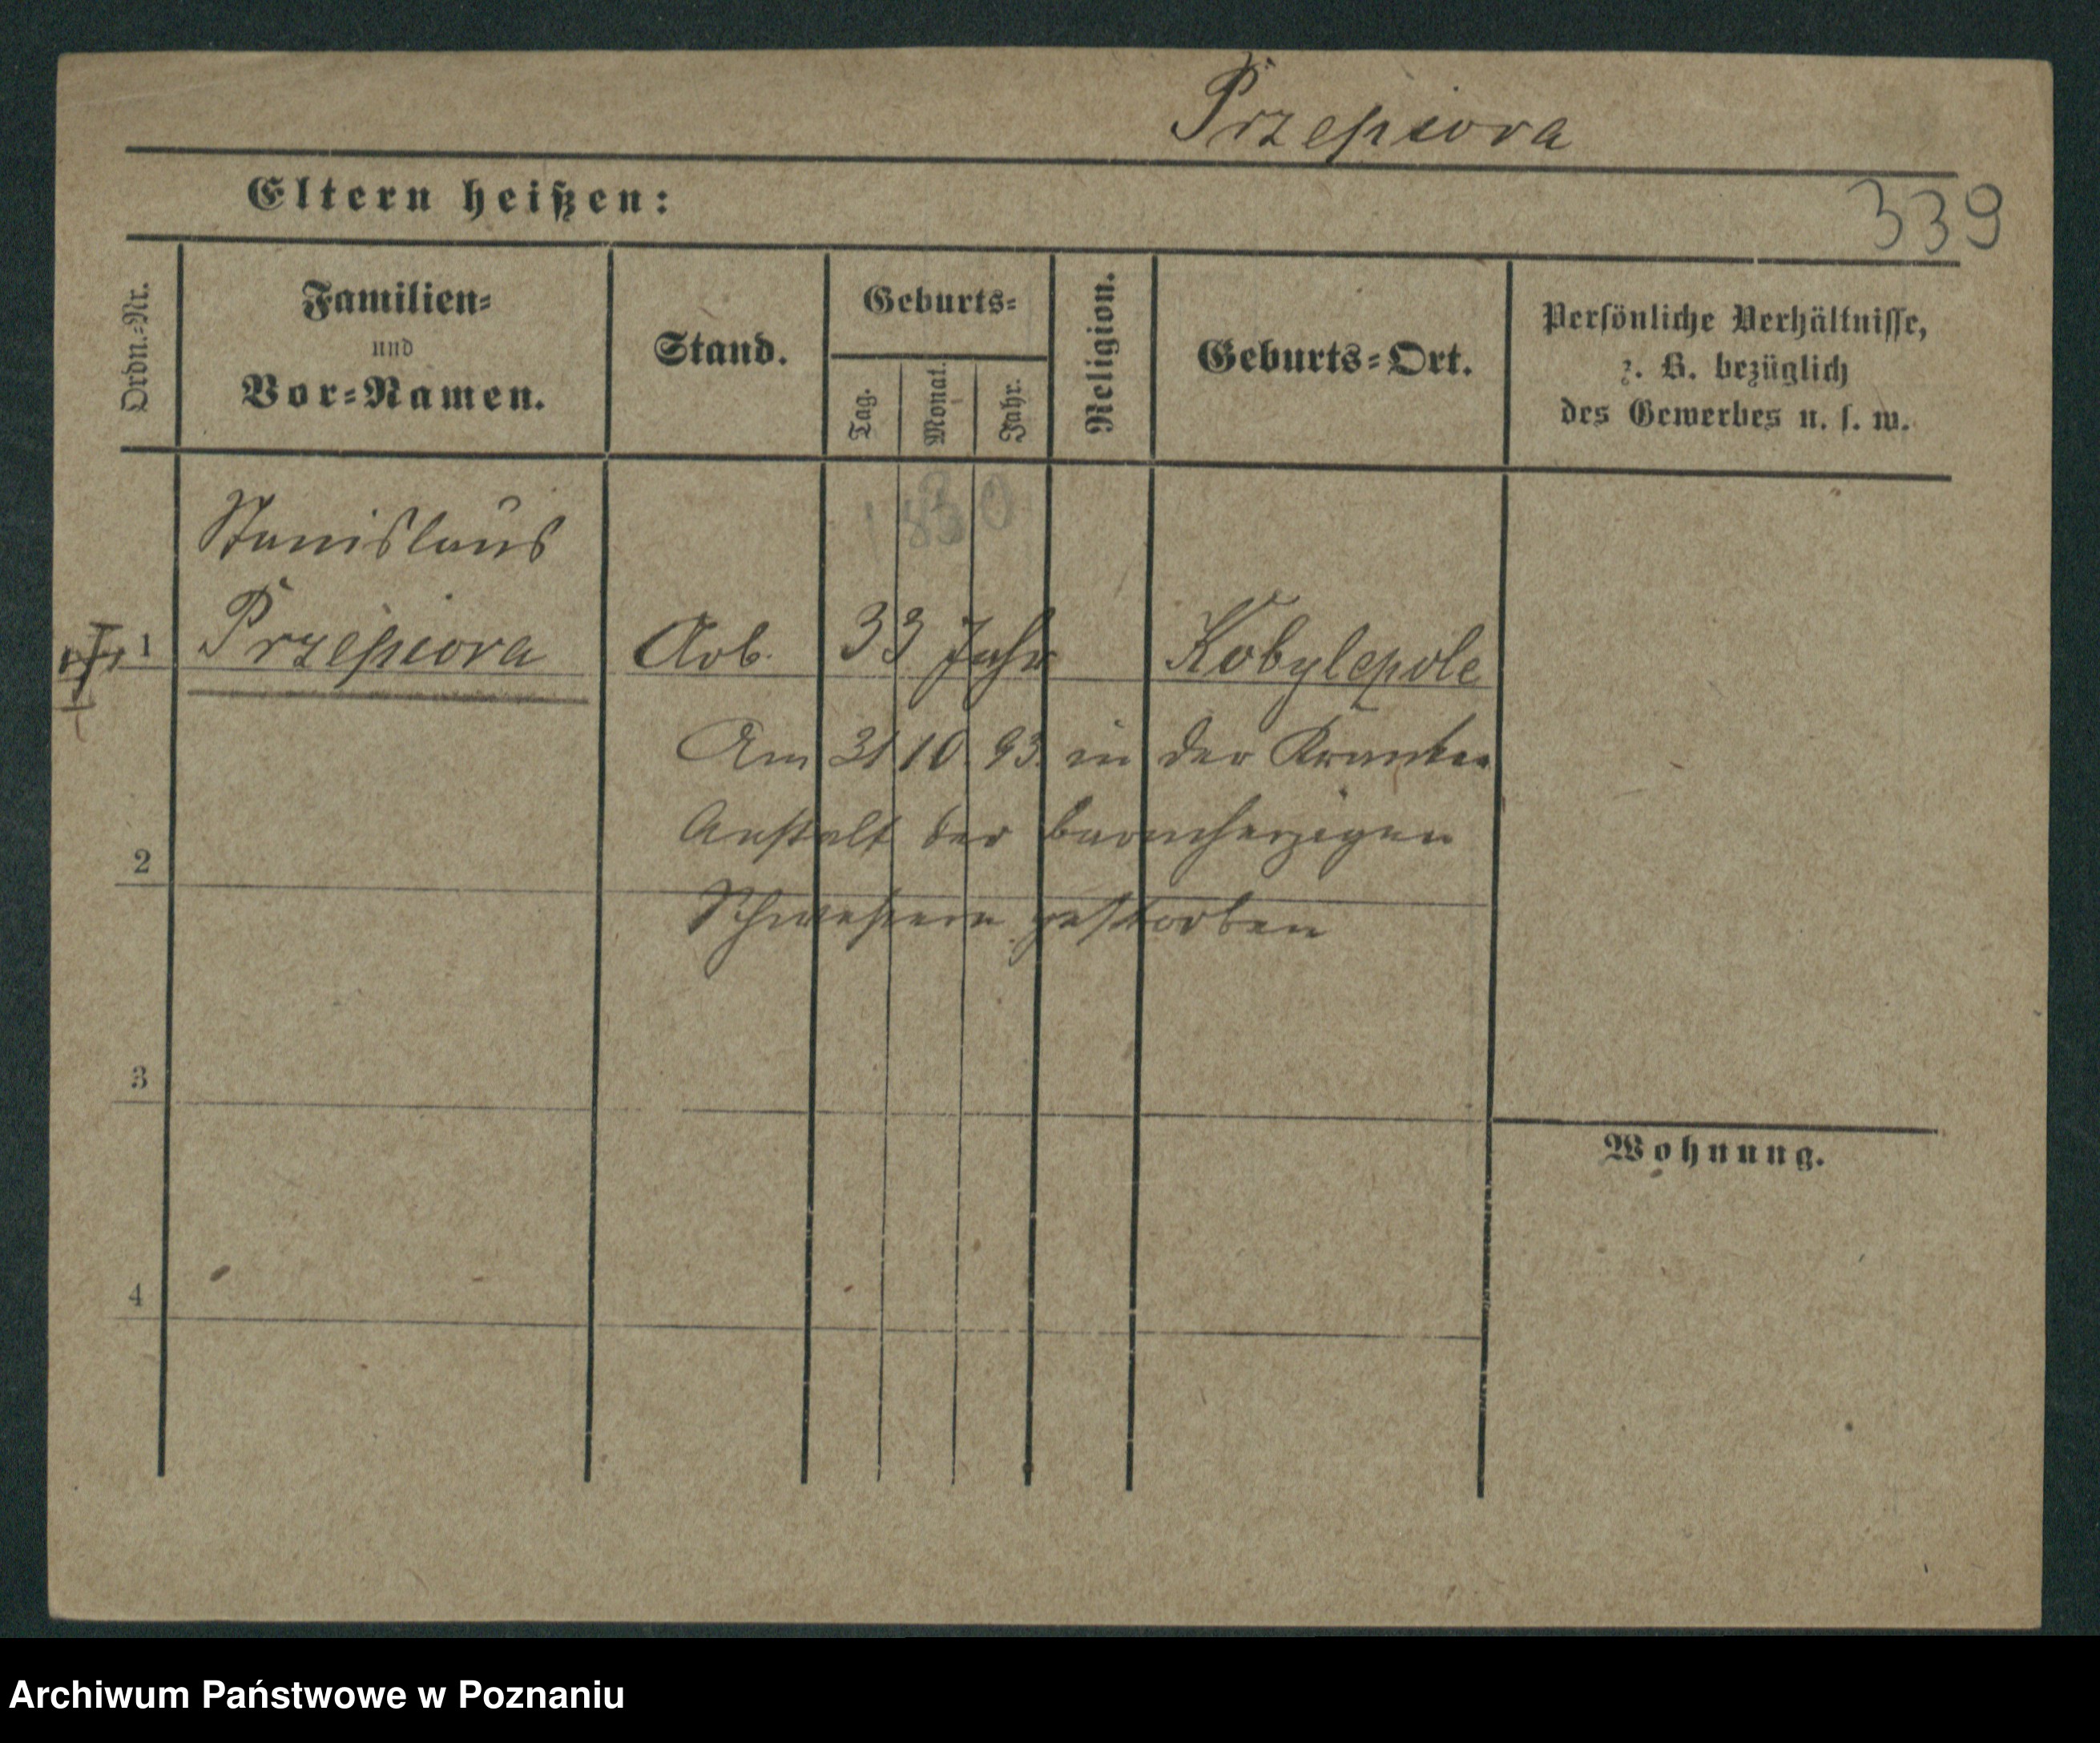 Przepiora
Eltern heißen:
339
Ordn.=Nr.
Familien=
und
Vor=Namen.
Stand.
Geburts=
Tag.
Monat.
Jahr.
Religion.
Geburts=Ort.
Persönliche Verhältnisse,
z. B. bezüglich
des Gewerbes u. s. w.
Stanislaus
1 Przepiora Arb. 33 Jahr Kobylepole
Am 31 10. 93. in der Kranken
Anstalt der barmherzigen
2
Schwestern gestorben
3
Wohnung.
4
Archiwum Państwowe w Poznaniu